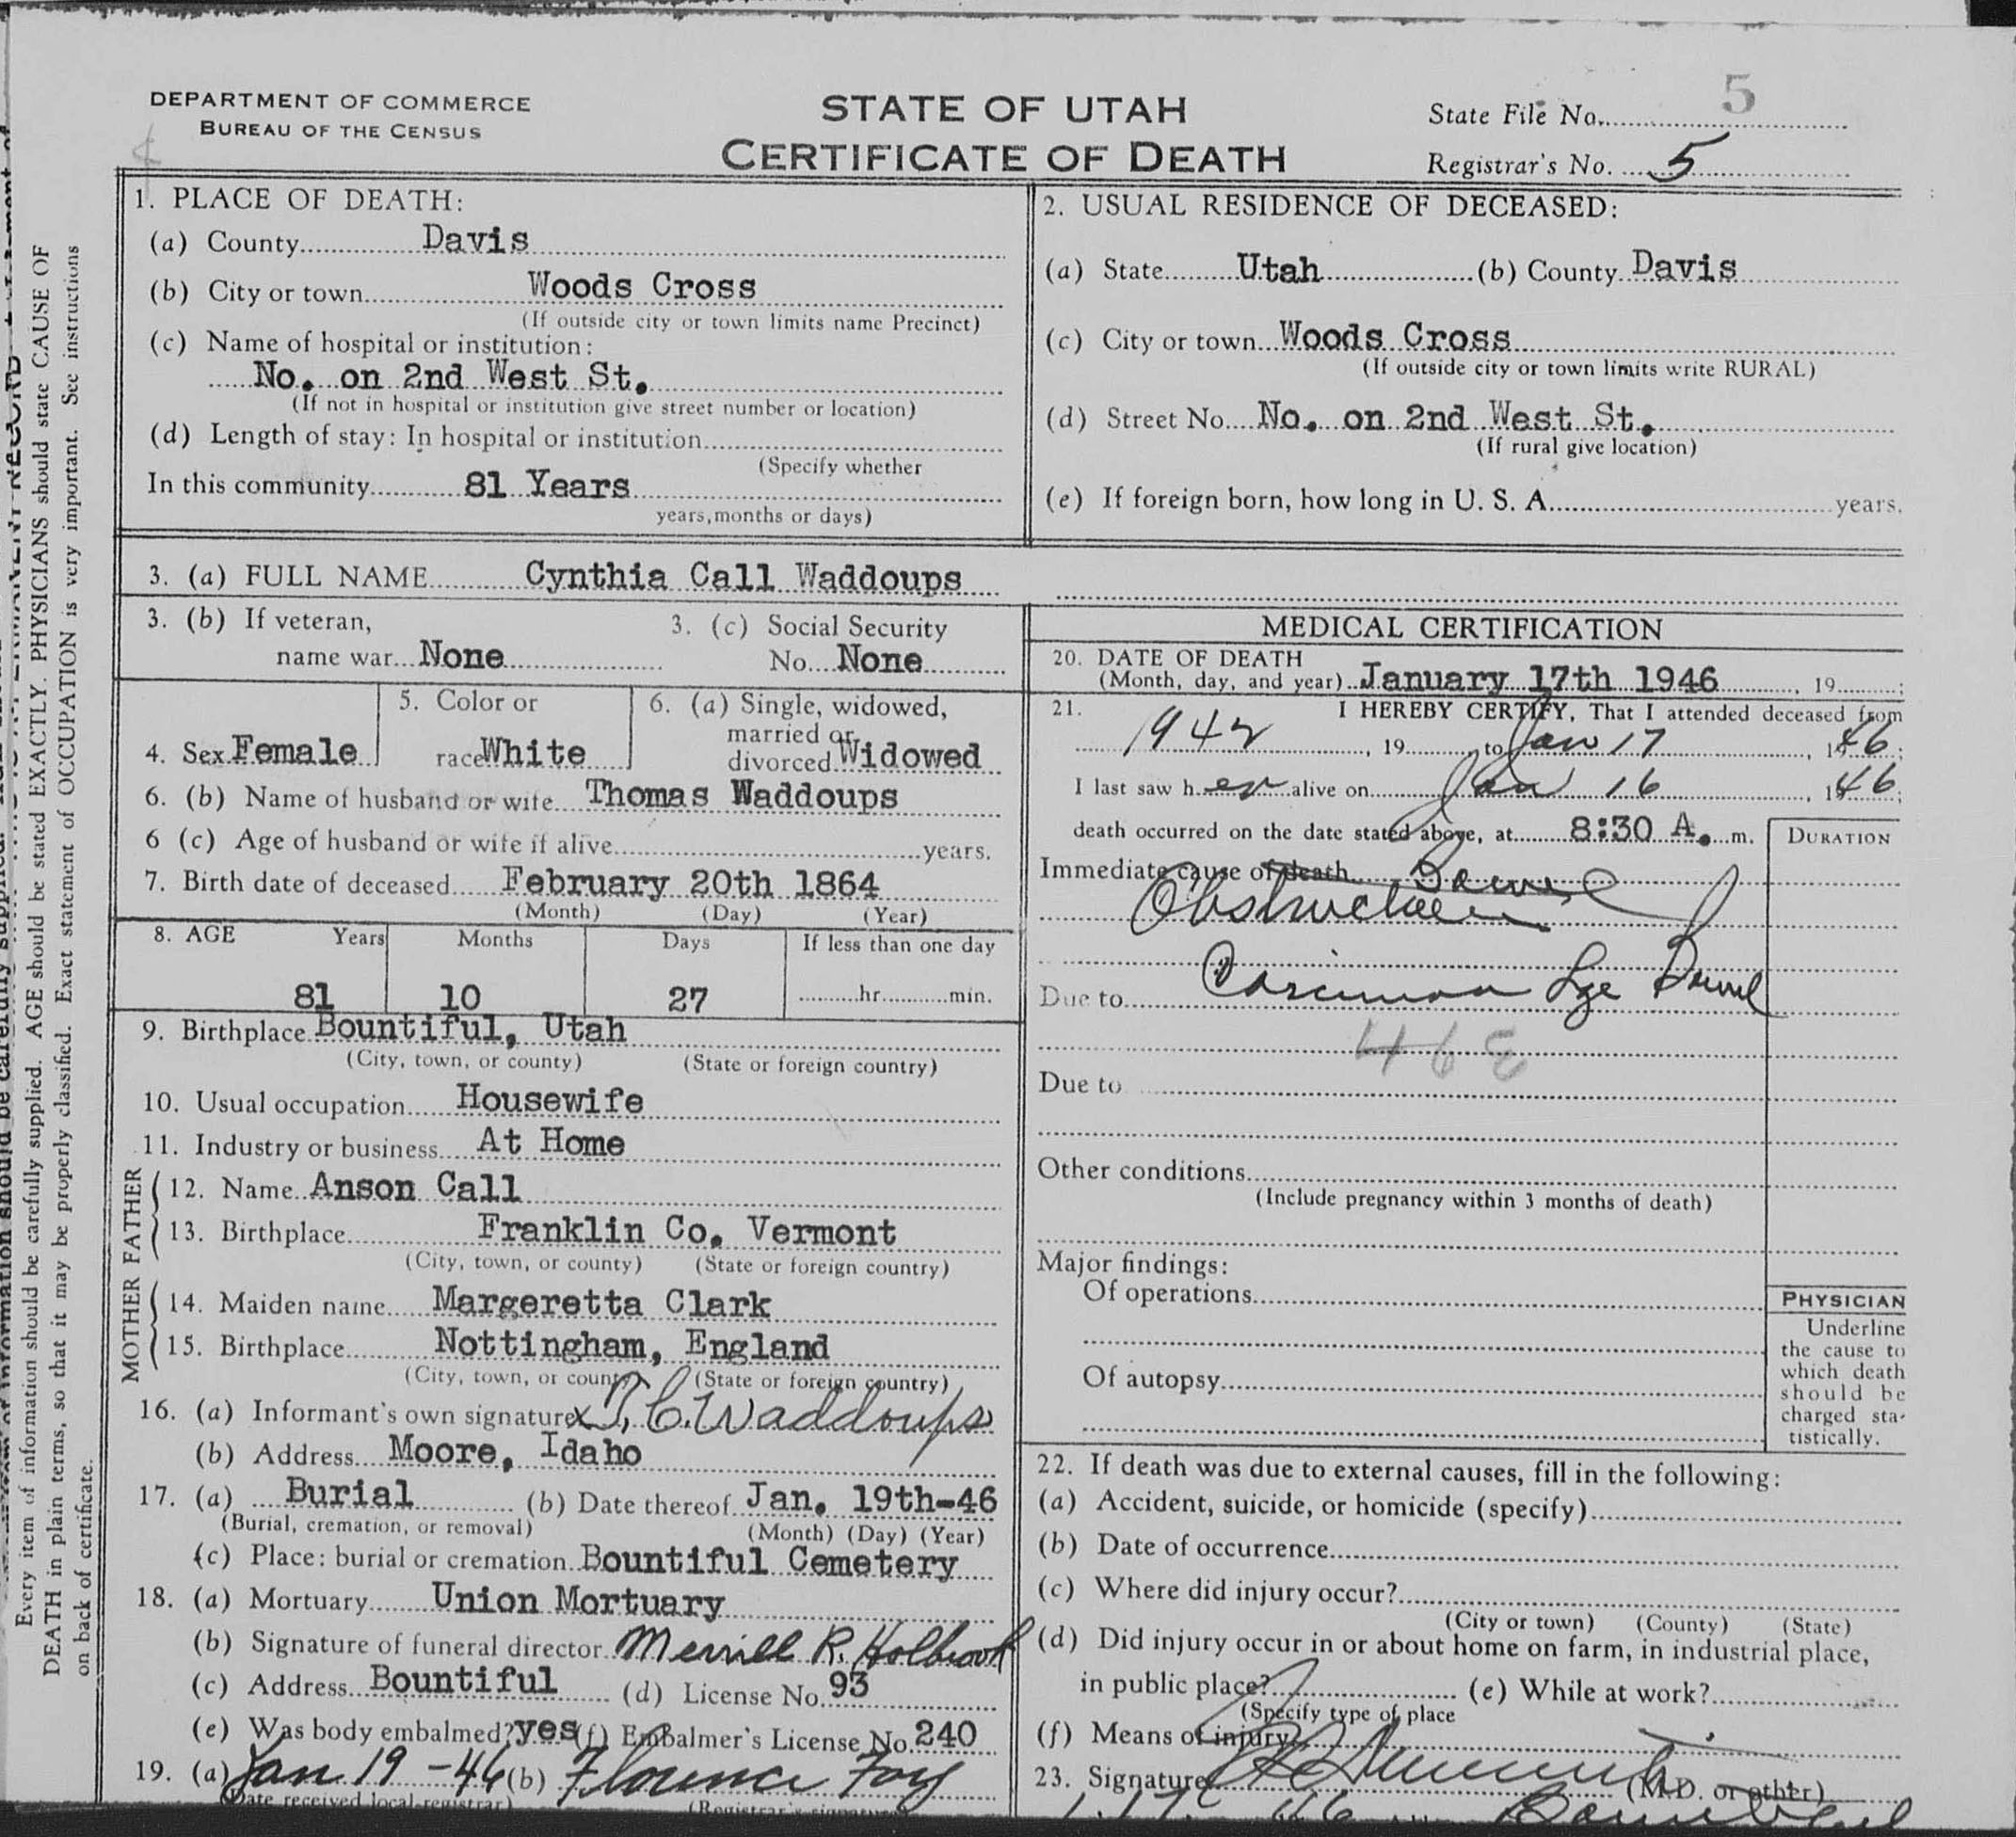 DEPARTMENT OF COMMERCE
BUREAU OF THE CENSUS
STATE OF UTAH
CERTIFICATE OF DEATH
State File No. 5
Registrar's No. 5
1. PLACE OF DEATH:
(a) County Davis
(b) City or town Woods Cross
(If outside city or town limits name Precinct)
(c) Name of hospital or institution:
No. on 2nd West St.
(If not in hospital or institution give street number or location)
(d) Length of stay: In hospital or institution
(Specify whether
In this community 81 Years
years, months or days)
2. USUAL RESIDENCE OF DECEASED:
(a) State Utah (b) County Davis
(c) City or town Woods Cross
(If outside city or town limits write RURAL)
(d) Street No. No. on 2nd West St.
(If rural give location)
(e) If foreign born, how long in U. S. A. years.
3. (a) FULL NAME Cynthia Call Waddoups
3. (b) If veteran,
name war None
3. (c) Social Security
No. None
4. Sex Female
5. Color or
race White
6. (a) Single, widowed,
married or
divorced Widowed
6. (b) Name of husband or wife Thomas Waddoups
6 (c) Age of husband or wife if alive years.
7. Birth date of deceased February 20th 1864
(Month) (Day) (Year)
8. AGE Years Months Days If less than one day
81 10 27 hr. min.
9. Birthplace Bountiful, Utah
(City, town, or county) (State or foreign country)
10. Usual occupation Housewife
11. Industry or business At Home
FATHER
12. Name Anson Call
13. Birthplace Franklin Co. Vermont
(City, town, or county) (State or foreign country)
MOTHER
14. Maiden name Margeretta Clark
15. Birthplace Nottingham, England
(City, town, or county) (State or foreign country)
16. (a) Informant's own signature x T. C. Waddoups
(b) Address Moore, Idaho
17. (a) Burial (b) Date thereof Jan. 19th-46
(Burial, cremation, or removal) (Month) (Day) (Year)
(c) Place: burial or cremation Bountiful Cemetery
18. (a) Mortuary Union Mortuary
(b) Signature of funeral director Merrill R. Holbrook
(c) Address Bountiful (d) License No. 93
(e) Was body embalmed? yes (f) Embalmer's License No. 240
19. (a) Jan 19 -46 (b) Florence Foy
(Date received local registrar) (Registrar's signature
MEDICAL CERTIFICATION
20. DATE OF DEATH
(Month, day, and year) January 17th 1946, 19 ;
21. I HEREBY CERTIFY, That I attended deceased from
1942, 19 to Jan 17, 1946;
I last saw her alive on Jan 16, 1946;
death occurred on the date stated above, at 8:30 A. m.
DURATION
Immediate cause of death Bowel
Obstruction
Due to Carcinoma Lge Bowel
46E
Due to
Other conditions
(Include pregnancy within 3 months of death)
Major findings:
Of operations
Of autopsy
PHYSICIAN
Underline
the cause to
which death
should be
charged sta-
tistically.
22. If death was due to external causes, fill in the following:
(a) Accident, suicide, or homicide (specify)
(b) Date of occurrence
(c) Where did injury occur?
(City or town) (County) (State)
(d) Did injury occur in or about home on farm, in industrial place,
in public place? (e) While at work?
(Specify type of place
(f) Means of injury?
23. Signature (M.D. or other)
Every item of information should be carefully supplied. AGE should be stated EXACTLY. PHYSICIANS should state CAUSE OF
DEATH in plain terms, so that it may be properly classified. Exact statement of OCCUPATION is very important. See instructions
on back of certificate.